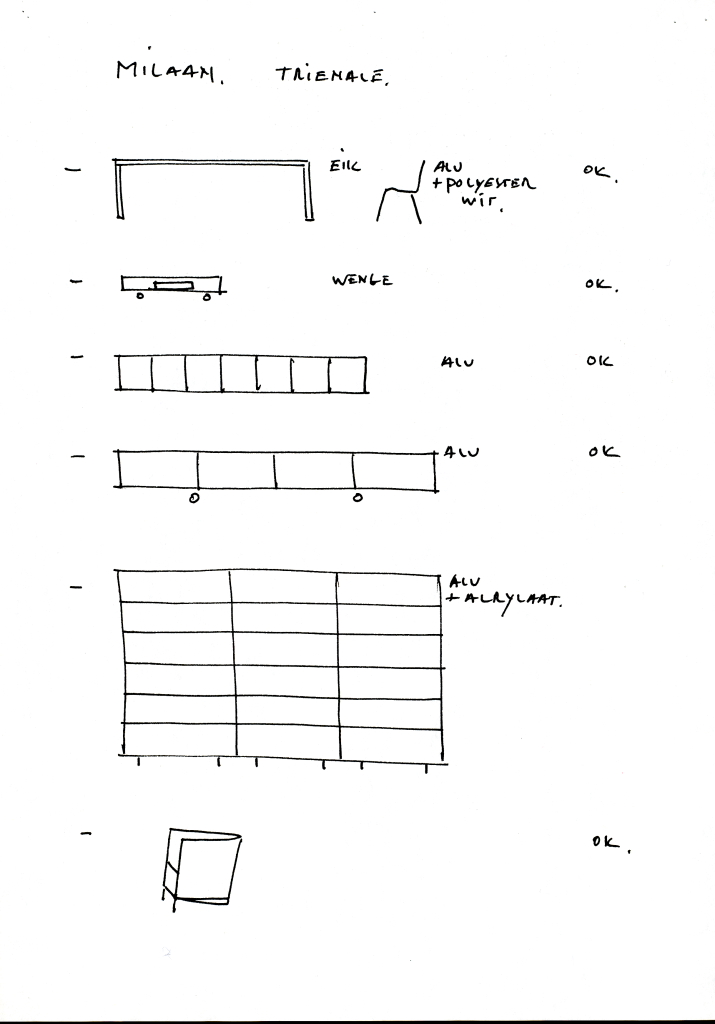 MILAAN. TRIENALE.
- EIK ALU OK.
+ POLYESTER
WIT.
- WENGE OK.
- ALU OK
- ALU OK
- ALU
+ ACRYLAAT.
- OK.